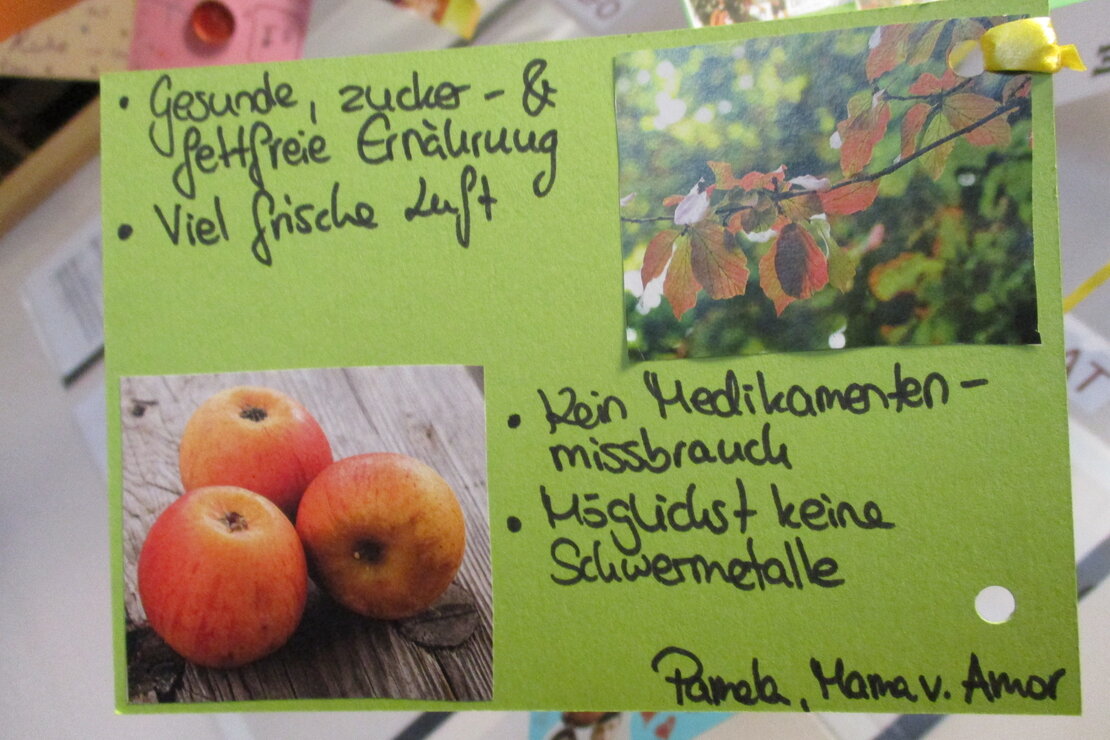 • Gesunde, zucker- &
fettfreie Ernährung
• Viel frische Luft
• Kein Medikamenten-
missbrauch
• Möglichst keine
Schwermetalle
Pamela, Mama v. Amor